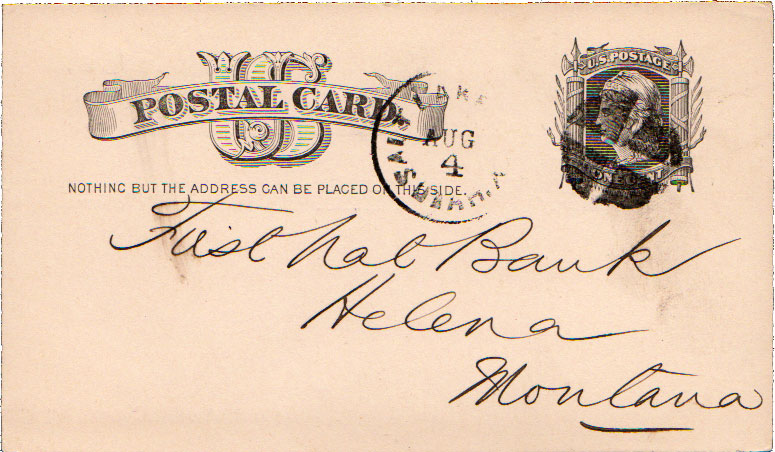 U.S. POSTAGE
US
POSTAL CARD
SALT LAKE
AUG
4
NOTHING BUT THE ADDRESS CAN BE PLACED ON THIS SIDE.
ONE CENT
First Nat Bank
Helena
Montana